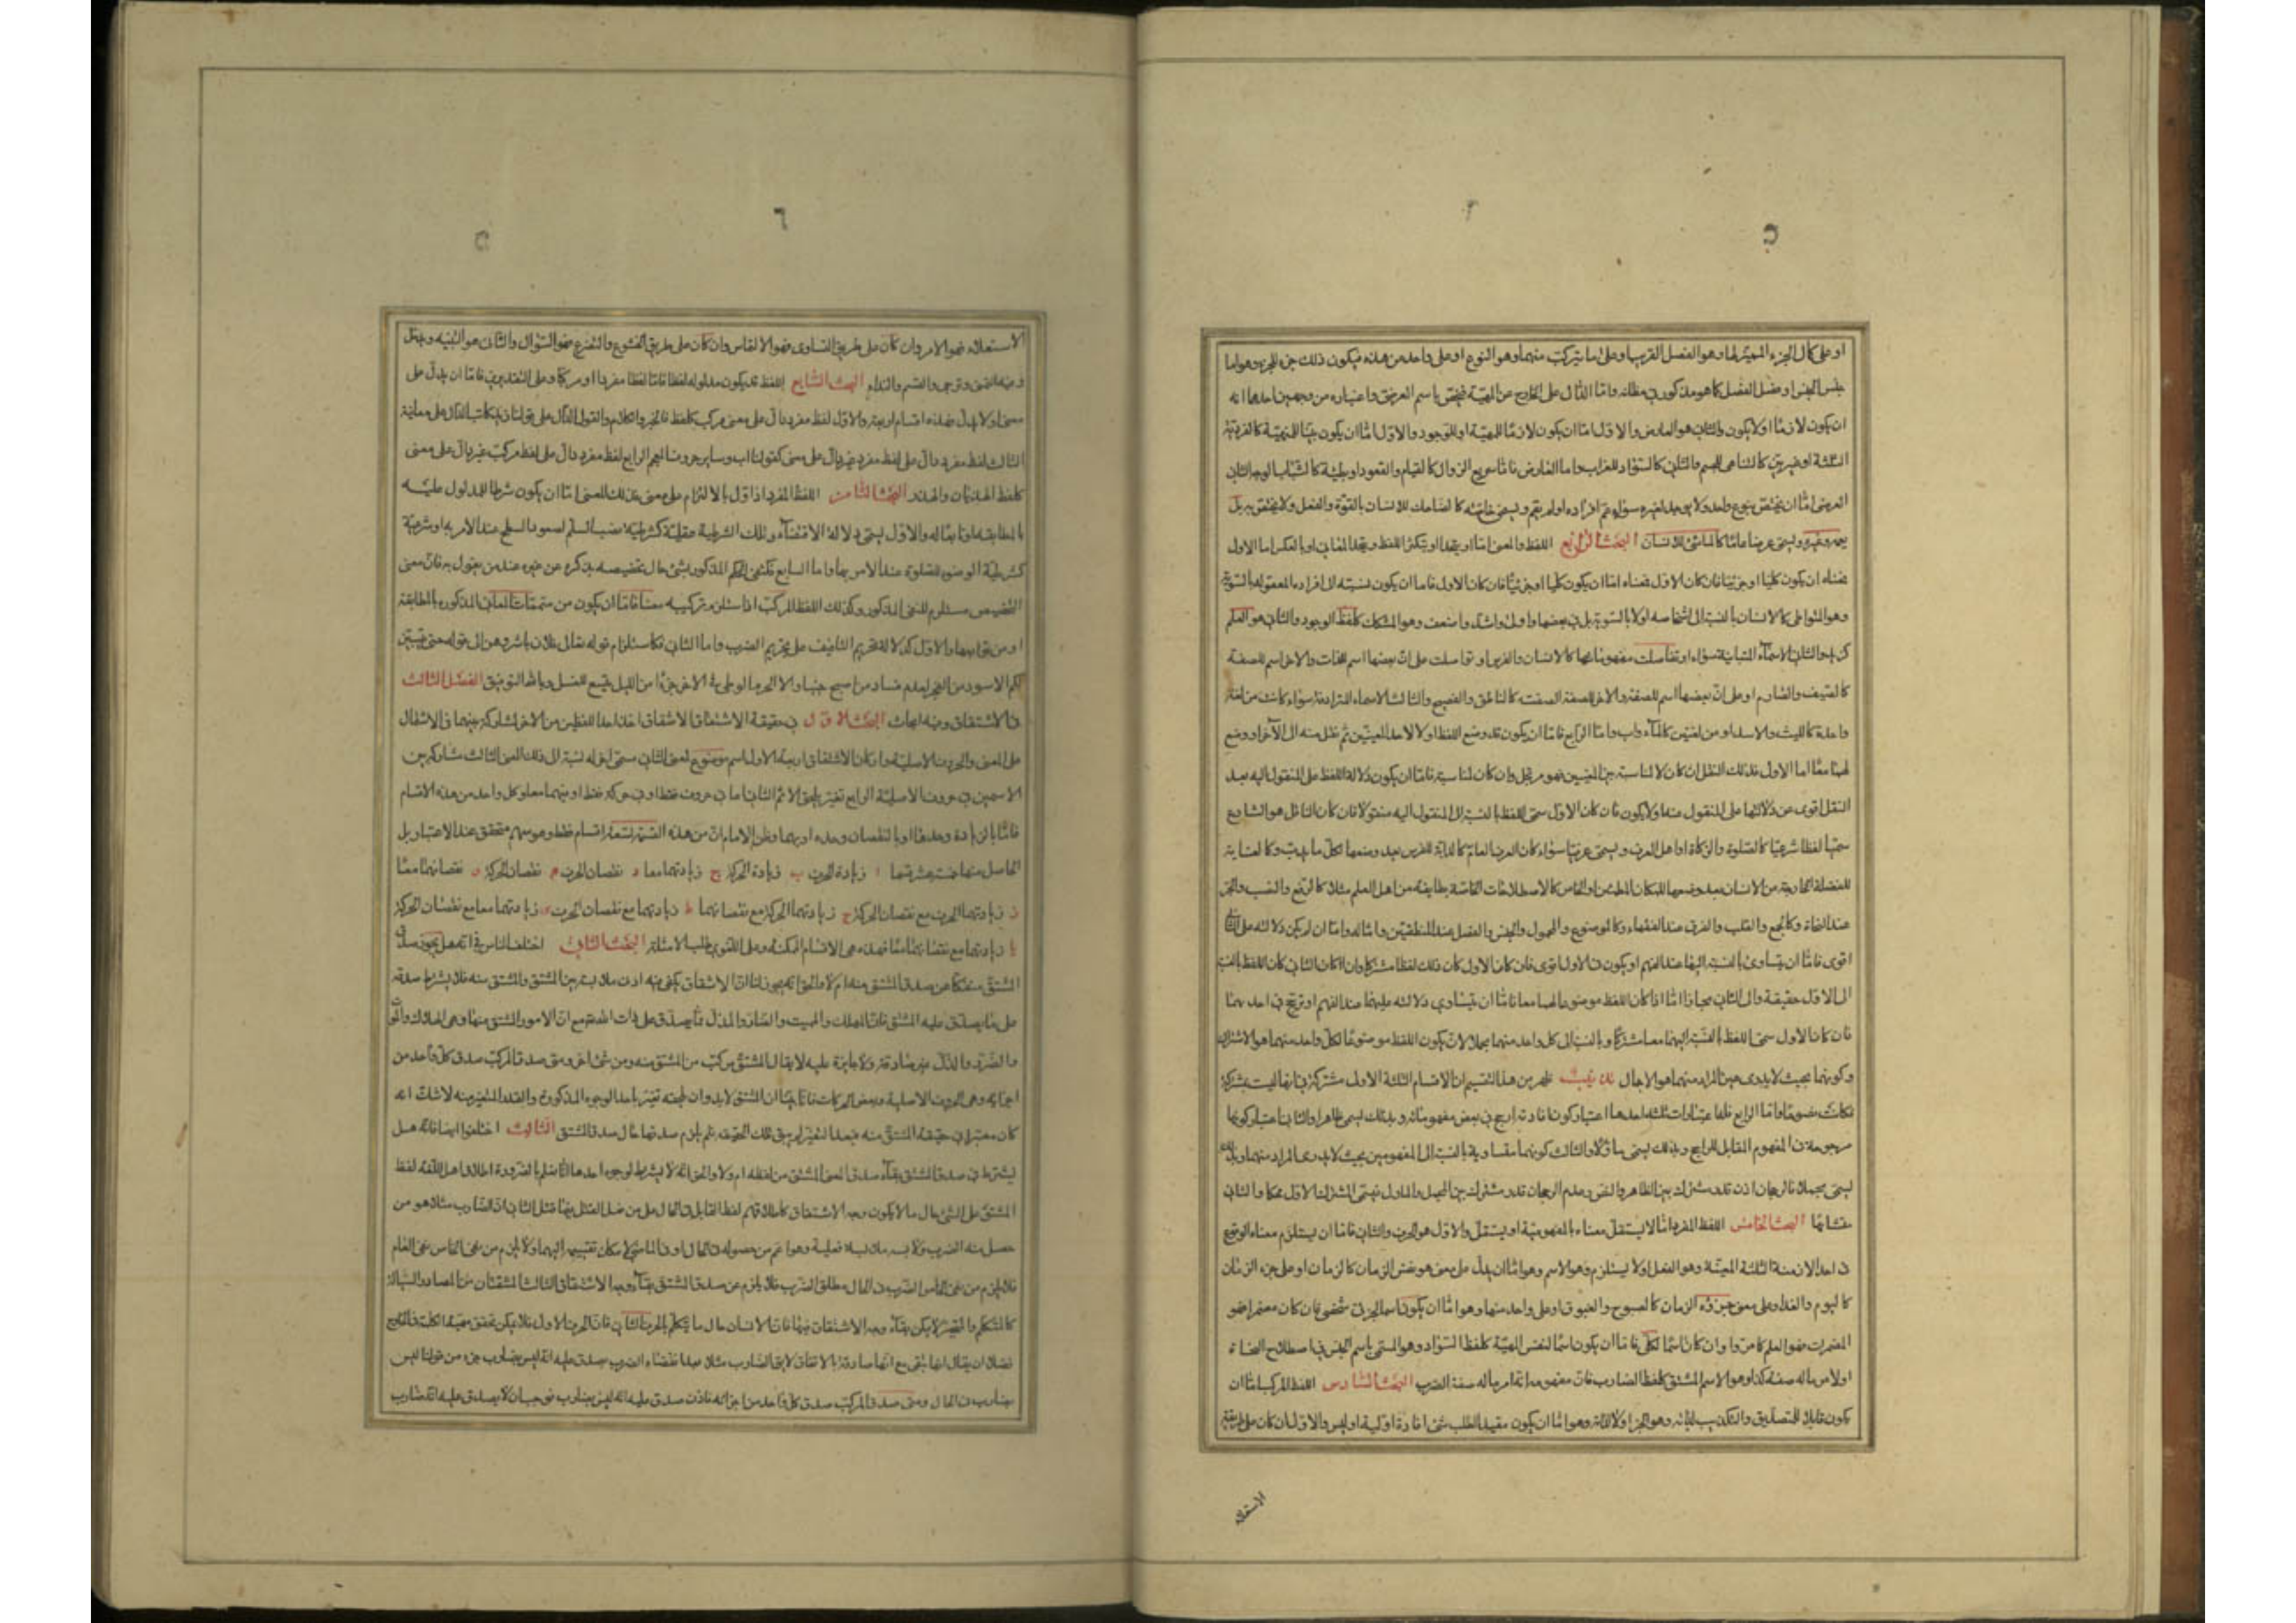 او على كمال الجزء المميز لها وهو الفصل القريب او على ما يتركب منهما وهو النوع او على واحد من هذه فيكون ذلك جزء الجزء وهو اما
جنس الجنس او فصل الفصل كما هو مذكور في مظانه واما الدال على الخارج عن المهية فيختص باسم العرضى واعتباره من وجهين احدهما انه
ان يكون لازما اولا يكون والثاني هو العارض والاول اما ان يكون لازما للمهية او للوجود والاول اما ان يكون بينا للمهية كالفردية
الثلثة او غير بين كالتناهى للجسم والثاني كالسواد للغراب واما العارض فاما سريع الزوال كالقيام والقعود او بطيئه كالشباب الوجه الثاني
العرضى اما ان يختص بنوع واحد ولا يوجد لغيره سواء عم افراده او لم يعم ويسمى خاصة كالضاحك للانسان بالقوة والفعل ولا يختص به بل
يعمه وغيره ويسمى عرضا عاما كالماشى للانسان البحث الرابع اللفظ والمعنى اما ان يتحدا او يتكثر اللفظ ويتحد المعنى او بالعكس اما الاول
فمعناه ان يكون كليا او جزئيا فان كان الاول فمعناه اما ان يكون كليا او جزئيا فان كان الاول فاما ان يكون نسبته الى افراده المعقولة بالسوية
وهو المتواطى كالانسان بالنسبة الى اشخاصه اولا بالسوية بل في بعضها اولى واشد واضعف وهو المشكك كلفظ الوجود والثاني هو العلم
كزيد والثاني الاسماء المتباينة سواء تفاصلت مفهوماتها كالانسان والفرس او تواصلت على ان بعضها اسم للذات والاخر اسم للصفة
كالسيف والصارم او على ان بعضها اسم للصفة والاخر لصفة الصفة كالناطق والفصيح والثالث الاسماء المترادفة سواء كانت من لغة
واحدة كالليث والاسد او من لغتين كالماء واب واما الرابع فاما ان يكون قد وضع اللفظ اولا لاحد المعنيين ثم نقل منه الى الآخر او وضع
لهما معا اما الاول فذلك النقل ان كان لا لمناسبة بين المعنيين فهو مرتجل وان كان لمناسبة فاما ان يكون دلالة اللفظ على المنقول اليه بعد
النقل اقوى من دلالتها على المنقول منه اولا يكون فان كان الاول سمى اللفظ بالنسبة الى المنقول اليه منقولا فان كان الناقل هو الشارع
سمى لفظا شرعيا كالصلوة والزكاة او اهل العرف ويسمى عرفيا سواء كان العرف العام كالدابة للفرس بعد وضعها لكل ما يدب وكالغايط
للفضلة الخارجة من الانسان بعد وضعها للمكان المطمئن او الخاص كالاصطلاحات الخاصة بطايفة من اهل العلم مثلا كالرفع والنصب والجر
عند النحاة وكالجمع والقلب والفرق عند الفقهاء وكالموضوع والمحمول والجنس والفصل عند المنطقيين وامثاله واما ان لم يكن دلالته على الثاني
اقوى فاما ان يتساوى بالنسبة اليهما عند الفهم او يكون في الاول اقوى فان كان الاول كان ذلك لفظا مشتركا وان كان الثاني كان اللفظ بالنسبة
الى الاول حقيقة والى الثاني مجازا اما اذا كان اللفظ موضوعا لهما معا فاما ان يتساوى دلالته عليهما عند الفهم او ترجح في احدهما
فان كان الاول سمى اللفظ بالنسبة اليهما معا مشتركا وبالنسبة الى كل واحد منهما مجملا لان يكون اللفظ موضوعا لكل واحد منهما هو الاشتراك
وكونهما بحيث لا يدرى عين المراد منهما هو الاجمال تذنيب ظهر من هذا التقسيم ان الاقسام الثلثة الاول مشتركة في انها ليست بمشتركة
فكانت نصوصا واما الرابع فلها اعتبارات ثلثة احدها اعتبار كونها فادته ارجح في بعض مفهوماته وبذلك يسمى ظاهرا والثاني اعتبار كونها
مرجوحة في المفهوم المقابل للراجح وبذلك يسمى مأولا والثالث كونهما متساوية بالنسبة الى المفهومين بحيث لا يدرى المراد منهما وبذلك
يسمى مجملا فالرجحان اذن قدر مشترك بين الظاهر والنص وعدم الرجحان قدر مشترك بين المجمل والماول فيسمى المشترك الاول محكما والثاني
متشابها البحث الخامس اللفظ المفرد اما لا يستقل معناه بالمفهومية او يستقل والاول هو الحرف والثاني فاما ان يستلزم معناه الوقوع
في احد الازمنة الثلثة المعينة وهو الفعل او لا يستلزم وهو الاسم وهو اما ان يدل على معنى هو نفس الزمان كالزمان او على جزء الزمان
كاليوم والغد او على معنى جزؤه الزمان كالصبوح والغبوق او على واحد منها وهو اما ان يكون اسما لجزئى شخصى فان كان مضمرا فهو
المضمرات فهو العلم كما مر وان كان اسما لكلى فاما ان يكون اسما لنفس المهية كلفظ السواد وهو المسمى باسم الجنس في اصطلاح النحاة
او لامر ما له صفة كذا وهو الاسم المشتق كلفظ الضارب فان مفهومه انه امر ما له صفة الضرب البحث السادس اللفظ المركب اما ان
يكون قابلا للتصديق والتكذيب لذاته وهو الخبر او لا لذاته وهو اما ان يكون مفيد الطلب شئ افادة اولية او ليس والاول ان كان على طريقة
الاستعلاء
الاستعلاء فهو الامر وان كان على طريق التساوى فهو الالتماس وان كان على طريق الخشوع والتضرع فهو السؤال والثانى هو التنبيه ويدخل
فيه التمنى وترجى والقسم والنداء البحث السابع اللفظ قد يكون مدلوله لفظا فاما لفظا مفردا او مركبا وعلى التقديرين فاما ان يدل على
معنى اولا يدل فهذه اقسام اربعة والاول لفظ مفرد دال على معنى مركب كلفظ الخبر والكلام والقول الدال على قولنا زيد كاتب الدال على معانيه
الثالث لفظ مفرد دال على لفظ مفرد غير دال على معنى كقولنا اب وساير حروف المعجم الرابع لفظ مفرد دال على لفظ مركب غير دال على معنى
كلفظ الهذيان والهذر البحث الثامن اللفظ المفرد اذا دل بالالتزام على معنى فذلك المعنى اما ان يكون شرطا للمدلول عليه
بالمطابقة او تابعا له والاول يسمى دلالة الاقتضاء وتلك الشرطية عقلية كشرطية نصب السلم لصعود السطح عند الامر به او شرعية
كشرطية الوضوء للصلوة عند الامر بها واما التابع فكنفى الحكم المذكور بشئ حال تخصيصه بذكره عن غيره عند من يقول به فان معنى
التخصيص مستلزم للنفى المذكور وكذلك اللفظ المركب اذا استلزم تركيبه معنا فاما ان يكون من متممات المعانى المذكورة بالمطابقة
او من توابعها والاول كدلالة تحريم التافيف على تحريم الضرب واما الثانى فكاستلزام قوله تعالى فالان باشروهن الى قوله حتى يتبين
لكم الاسود من الفجر لعدم فساد من اصبح جنبا والا لحرم الوطى فى الاخر جزءا من الليل يتسع للغسل وبالله التوفيق الفصل الثالث
فى الاشتقاق وفيه ابحاث البحث الاول فى حقيقة الاشتقاق الاشتقاق اخذ احد اللفظين من الاخر لمشاركة بينهما فى الاشتمال
على المعنى والحروف الاصلية واركان الاشتقاق اربعة الاول اسم موضوع لمعنى الثانى مسمى اخر له نسبة الى ذلك المعنى الثالث مشاركة بين
الاسمين فى حروف الاصلية الرابع تغير يلحق الاسم الثانى اما فى حروف فقط او فى حركة فقط او فيهما معا وكل واحد من هذه الاقسام
فاما بالزيادة وحدها او بالنقصان وحده او بهما وظن الامام ان من هذه القسمة تسعة اقسام فقط وهو سهم متحقق عند الاعتبار بل
الحاصل منها خمسة عشر قسما ا زيادة الحرف ب زيادة الحركة ج زيادتهما معا د نقصان الحرف ه نقصان الحركة و نقصانهما معا
ز زيادتهما الحرف مع نقصان الحركة ح زيادتهما الحركة مع نقصانهما ط زيادتهما مع نقصان الحرف ى زيادتهما معا مع نقصان الحركة
يا زيادتهما مع نقصانهما معا فهذه هى الاقسام الممكنة وعلى اللغوى طلب الامثلة البحث الثانى اختلف الناس فى انه هل يجوز صدق
المشتق منفكا عن صدق المشتق منه ام لا والحق انه يجوز لنا ان الاشتقاق يكفى فيه ادنى ملابسة بين المشتق والمشتق منه فلا يشترط صدقه
على ما يصدق عليه المشتق فان المهلك والمميت والضار والمذل يصدق على ذات الله مع ان الامور المشتق منها وهى الهلاك والموت
والضرر والذل غير صادقة ولا جايزة عليه لا يقال المشتق مركب من المشتق منه ومن شئ اخر ومتى صدق المركب صدق كل واحد من
اجزائه وهى الحروف الاصلية وبعض الحركات فانا بينا ان المشتق لا بد وان يلحقه تغير باحد الوجوه المذكورة والقدر المتغير منه لا شك انه
كان معتبرا فى حقيقة المشتق منه فبعد التغير لم يبق تلك الحقيقة فلم يلزم صدقها حال صدق المشتق الثالث اختلفوا ايضا فى انه هل
يشترط فى صدق المشتق بقاء صدق المعنى المشتق من لفظه ام لا والحق انه لا يشترط لوجوه احدها انا نعلم بالضرورة اطلاق اهل اللغة لفظ
المشتق على الشئ حال ما لا يكون وجه الاشتقاق كاطلاقهم لفظ القاتل فى الحال على من فعل القتل فيما قبل الثانى ان الضارب مثلا هو من
حصل منه الضرب
فلا يلزم من نفى الضرب فى الحال مطلق الضرب فلا يلزم من صدق المشتق بقاء وجه الاشتقاق الثالث المشتقات من المصادر السيالة
كالمتكلم والمخبر لا يمكن بقاء وجه الاشتقاق فيها فان الانسان حال ما يتكلم بالحرف الثانى فات الحرف الاول فلا يمكن تحقق حقيقة الكلمة فى الخارج
فضلا ان يقال انها بقى مع انها صادقة بالاتفاق لا يقال الضارب مثلا بعد انقضاء الضرب يصدق عليه انه ليس بضارب جزء من قولنا ليس
بضارب فى الحال ومتى صدق المركب صدق كل واحد من اجزائه فاذن صدق عليه انه ليس بضارب فوجب ان لا يصدق عليه انه ضارب